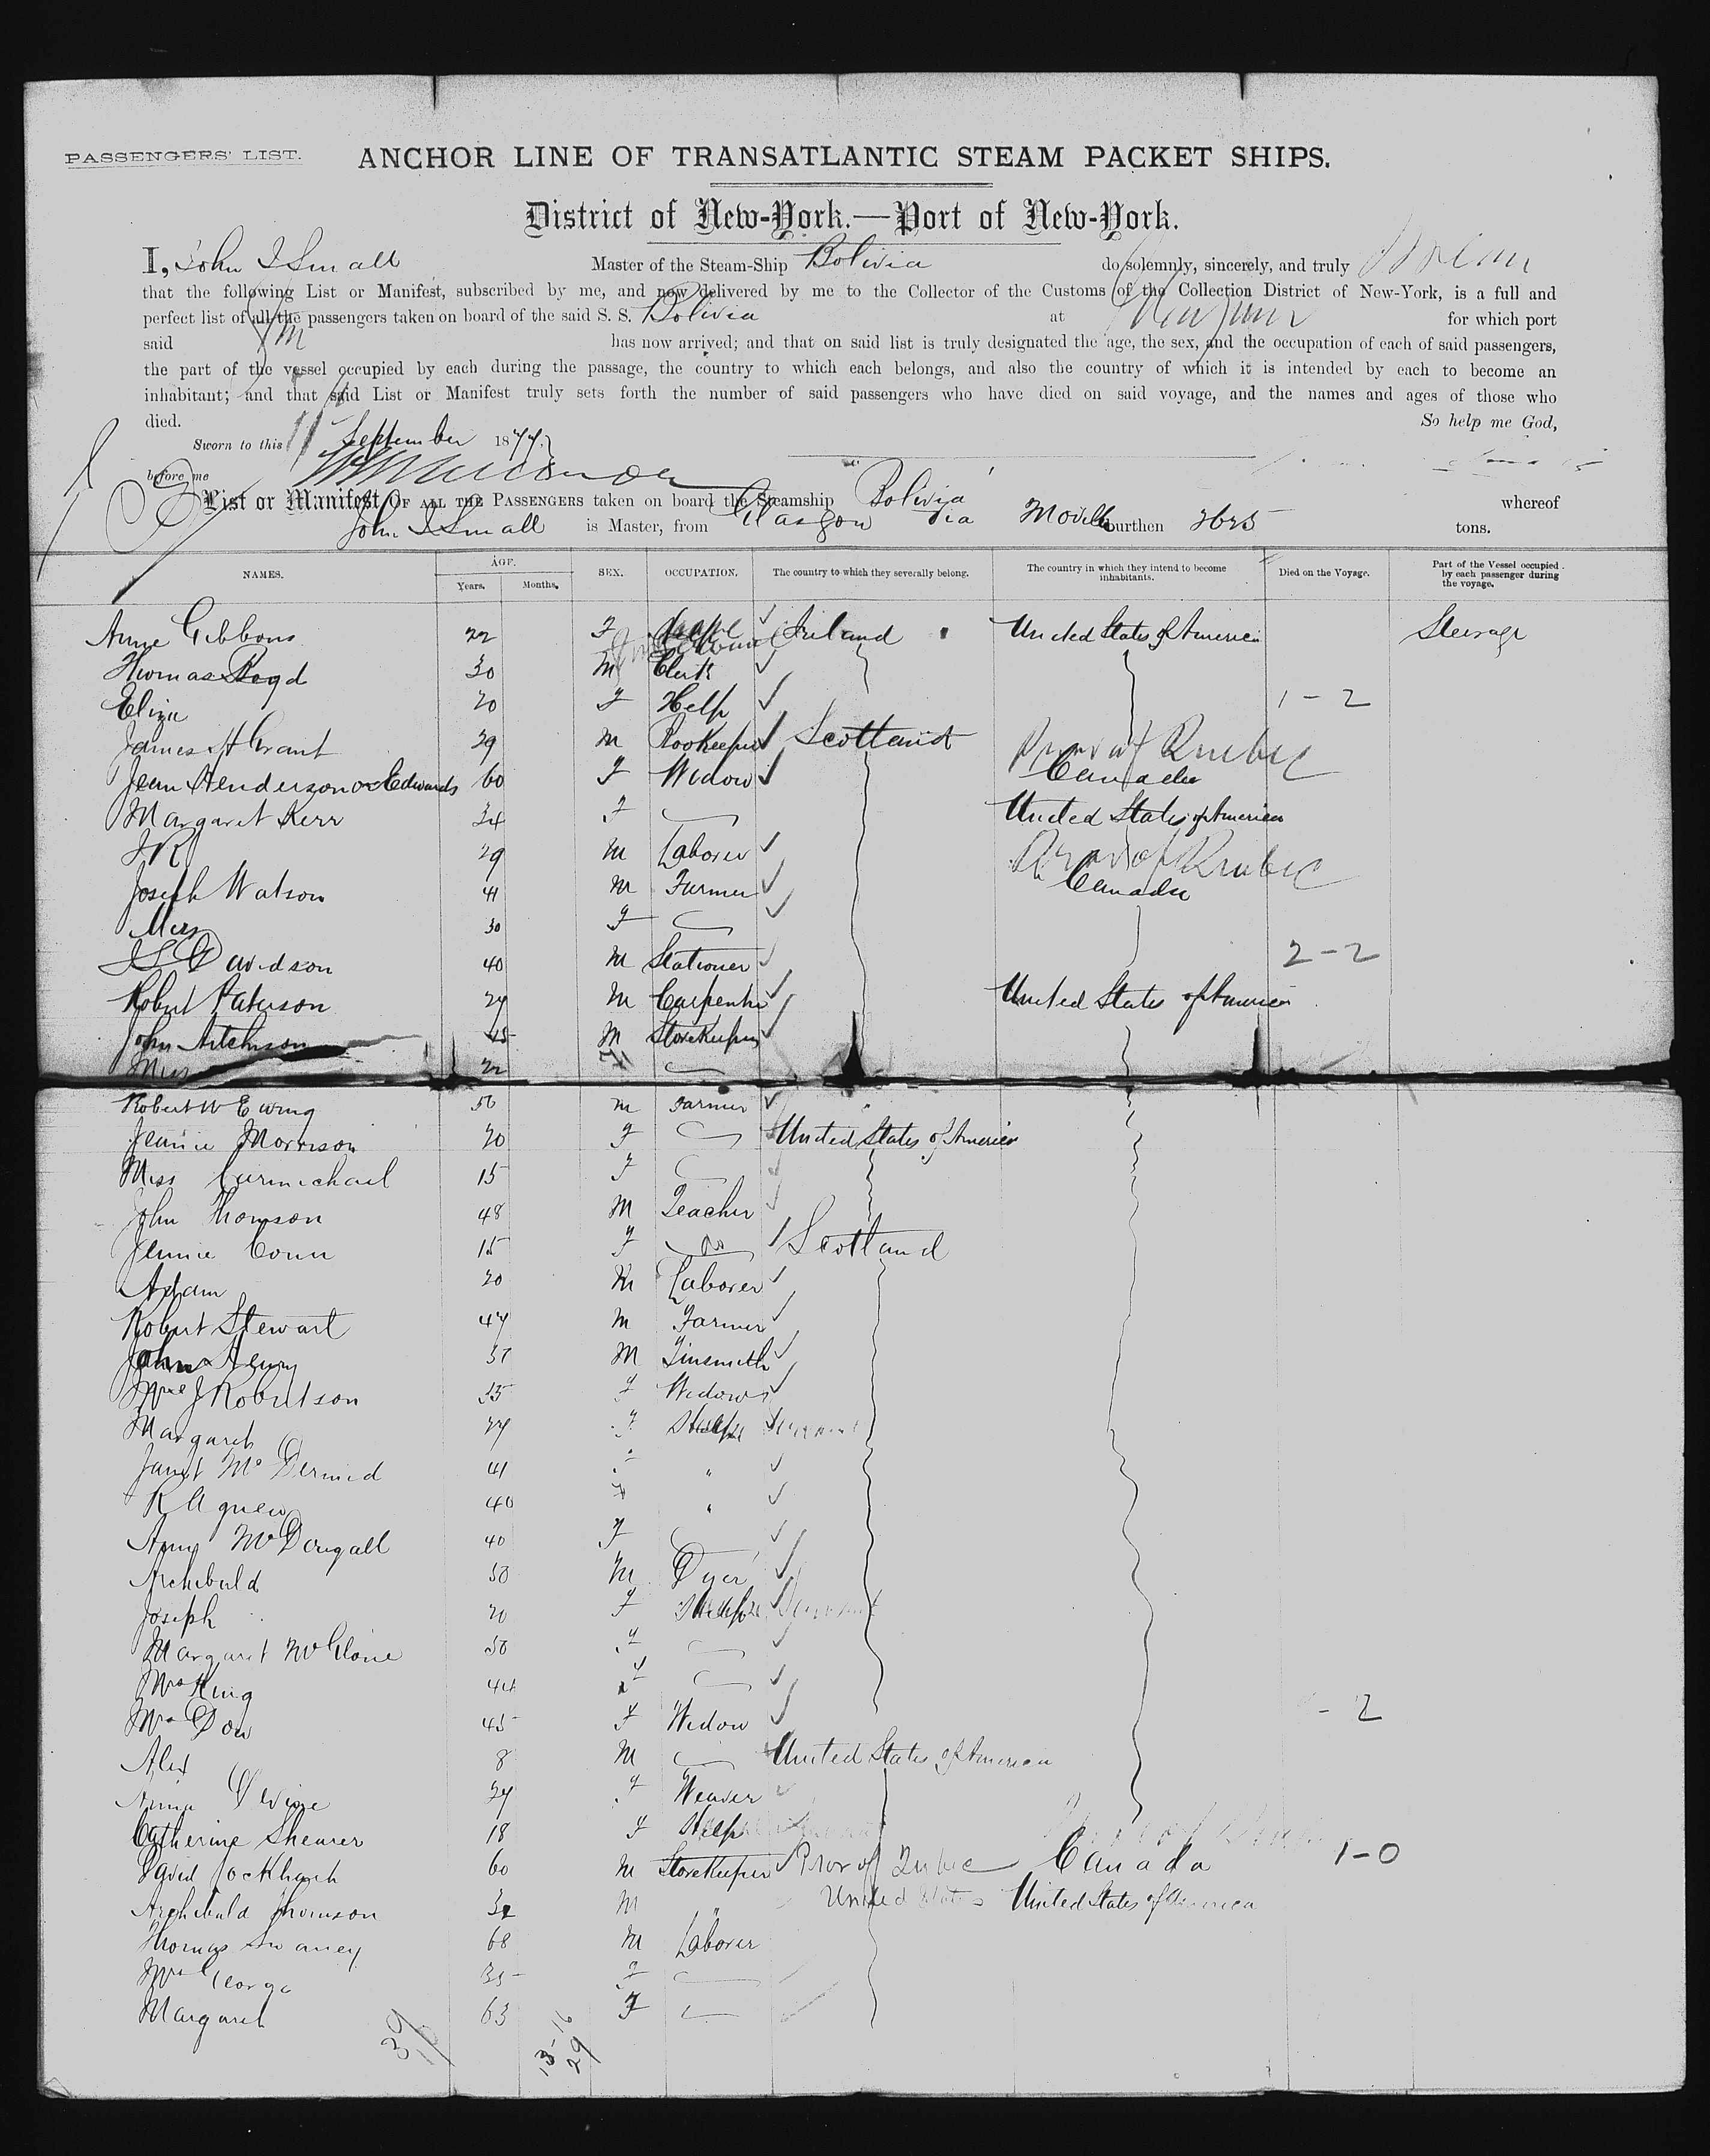 PASSENGERS' LIST.
ANCHOR LINE OF TRANSATLANTIC STEAM PACKET SHIPS.
District of New-York.—Port of New-York.
I, John I Small Master of the Steam-Ship Bolivia do solemnly, sincerely, and truly
that the following List or Manifest, subscribed by me, and now delivered by me to the Collector of the Customs of the Collection District of New-York, is a full and
perfect list of all the passengers taken on board of the said S. S. Bolivia at for which port
said has now arrived; and that on said list is truly designated the age, the sex, and the occupation of each of said passengers,
the part of the vessel occupied by each during the passage, the country to which each belongs, and also the country of which it is intended by each to become an
inhabitant; and that said List or Manifest truly sets forth the number of said passengers who have died on said voyage, and the names and ages of those who
died. So help me God,
Sworn to this 11 September 1877.
before me
List or Manifest OF ALL THE PASSENGERS taken on board the Steamship Bolivia whereof
John I Small is Master, from Glasgow via Moville burthen 2625 tons.
NAMES. AGE. Years. Months. SEX. OCCUPATION. The country to which they severally belong. The country in which they intend to become inhabitants. Died on the Voyage. Part of the Vessel occupied by each passenger during the voyage.
Anne Gibbons 22 F Ireland United States of America Steerage
Thomas Boyd 30 M Clerk
Eliza 20 F Help 1-2
James H Grant 29 M Bookeeper Scotland Prov of Quebec
Jean Henderson or Edwards 60 F Widow Canada
Margaret Kerr 34 F United States of America
J R 29 M Laborer Prov of Quebec
Joseph Watson 41 M Farmer Canada
Mrs 30 F
Davidson 40 M Stationer 2-2
Robert Paterson 27 M Carpenter United States of America
John Aitchison 45 M Storekeeper
Mrs 22
Robert W Ewing 50 M Farmer
Jeannie Morrison 20 F United States of America
Miss Carmichael 15 F
John Thomson 48 M Teacher
Jennie Conn 15 F Do Scotland
Adam 20 M Laborer
Robert Stewart 47 M Farmer
John Henry 37 M Tinsmith
Mrs J Robertson 35 F Widow
Margaret 27 F Servant
Janet McDermid 41 "
R Agnew 40 "
Amy McDougall 40 F
Archibald 50 M Dyer
Joseph 20 F Servant
Margaret McGlone 50 F
Mrs King 44 F
Mrs Dow 45 F Widow - 2
Alex 8 M United States of America
Annie Devine 27 F Weaver
Catherine Shearer 18 F Help
David Lockhart 60 M Storekeeper Prov of Quebec Canada 1-0
Archibald Thomson 32 M " United States United States of America
Thomas Swaney 68 M Laborer
Mrs George 35 F
Margaret 63 F
39
13-16
29